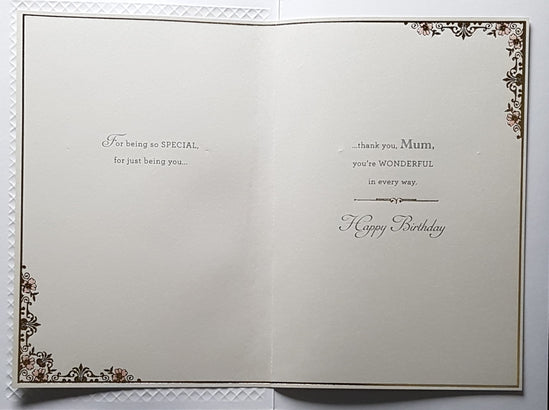 For being so SPECIAL,
for just being you...
...thank you, Mum,
you're WONDERFUL
in every way.
Happy Birthday